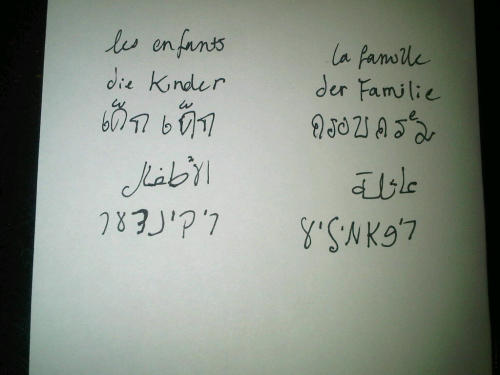 les enfants
die Kinder
เด็ก เด็ก
الأطفال
די קינדער
la famille
der Familie
ครอบครัว
عائلة
די פאמיליע